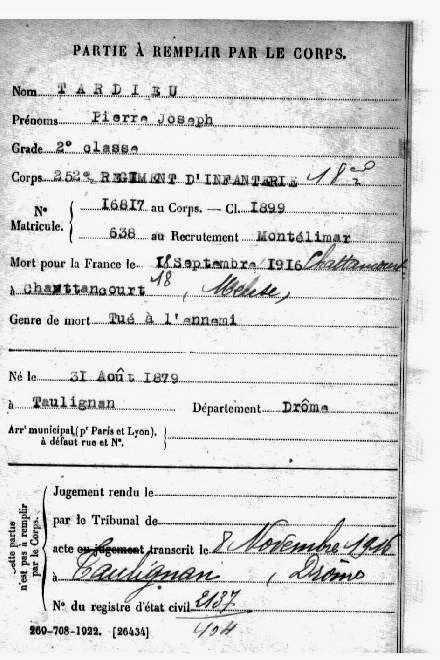 PARTIE À REMPLIR PAR LE CORPS.
Nom TARDIEU
Prénoms Pierre Joseph
Grade 2° classe
Corps 252° REGIMENT D'INFANTERIE
N° Matricule. { 16817 au Corps. — Cl. 1899
638 au Recrutement Montélimar
Mort pour la France le Septembre 1916
à Chattancourt 18, Meuse,
Genre de mort Tué à l'ennemi
Né le 31 Août 1879
à Taulignan Département Drôme
Arr' municipal (p' Paris et Lyon), à défaut rue et N°.
Cette partie n'est pas à remplir par le Corps.
Jugement rendu le
par le Tribunal de
acte ou jugement transcrit le 8 Novembre 1916
à Taulignan, Drôme
N° du registre d'état civil 2137
260-708-1922. [26434]